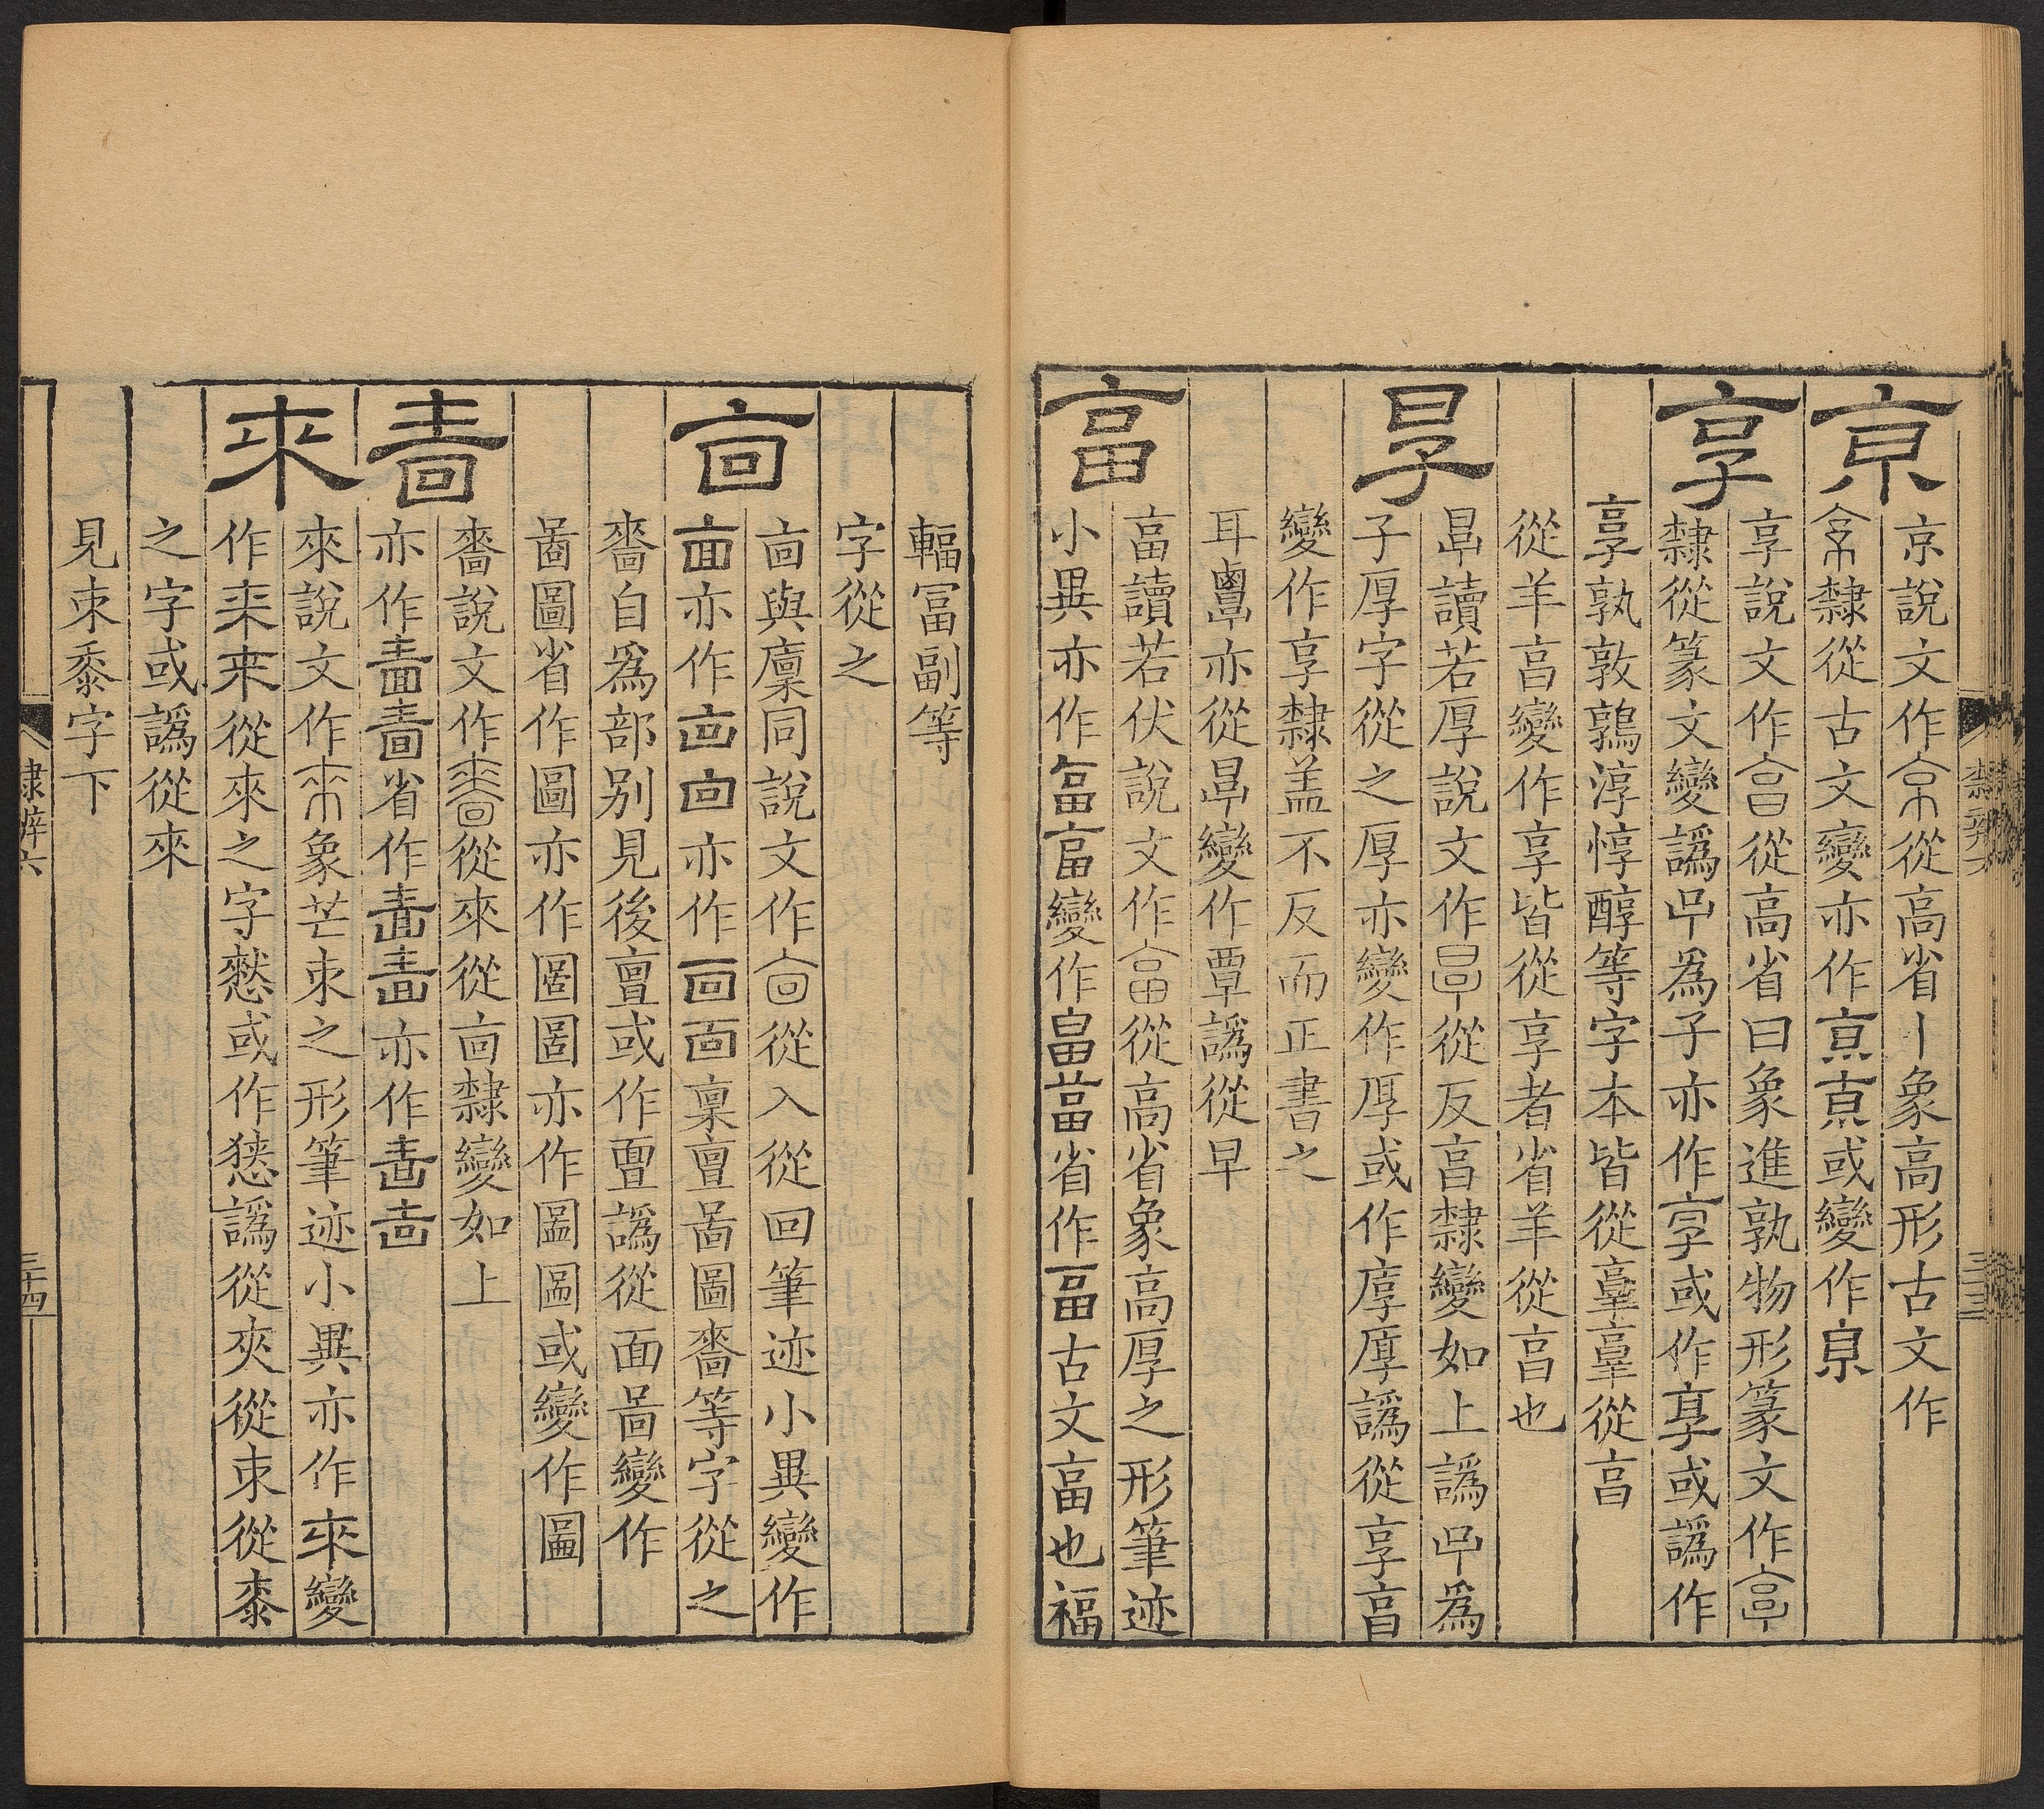 京 京說文作從高省丨象高形古文作
隸從古文變亦作或變作
享 享說文作從高省曰象進孰物形篆文作
隸從篆文變譌𠯑爲子亦作或作或譌作
享孰敦鶉淳惇醇等字本皆從𦎫𦎫從㐭
從羊㐭變作享皆從享者省羊從㐭也
㫗讀若厚說文作從反㐭隸變如上譌𠯑爲
子厚字從之厚亦變作厚或作譌從享㐭
變作享隸盖不反而正書之
耳亦從㫗變作覃譌從早
畗 畗讀若伏說文作從高省象高厚之形筆迹
小異亦作變作省作古文畗也福
輻冨副等
字從之
㐭 㐭與廩同說文作從入從回筆迹小異變作
亦作亦作稟亶啚圖嗇等字從之
嗇自爲部別見後亶或作譌從面啚變作
啚圖省作圖亦作亦作或變作
嗇 嗇說文作從來從㐭隸變如上
亦作省作亦作
來 來說文作象芒朿之形筆迹小異亦作來變
作来從來之字憖或作譌從夾從朿從桼
之字或譌從來
見朿黍字下
隸辨六
三十四